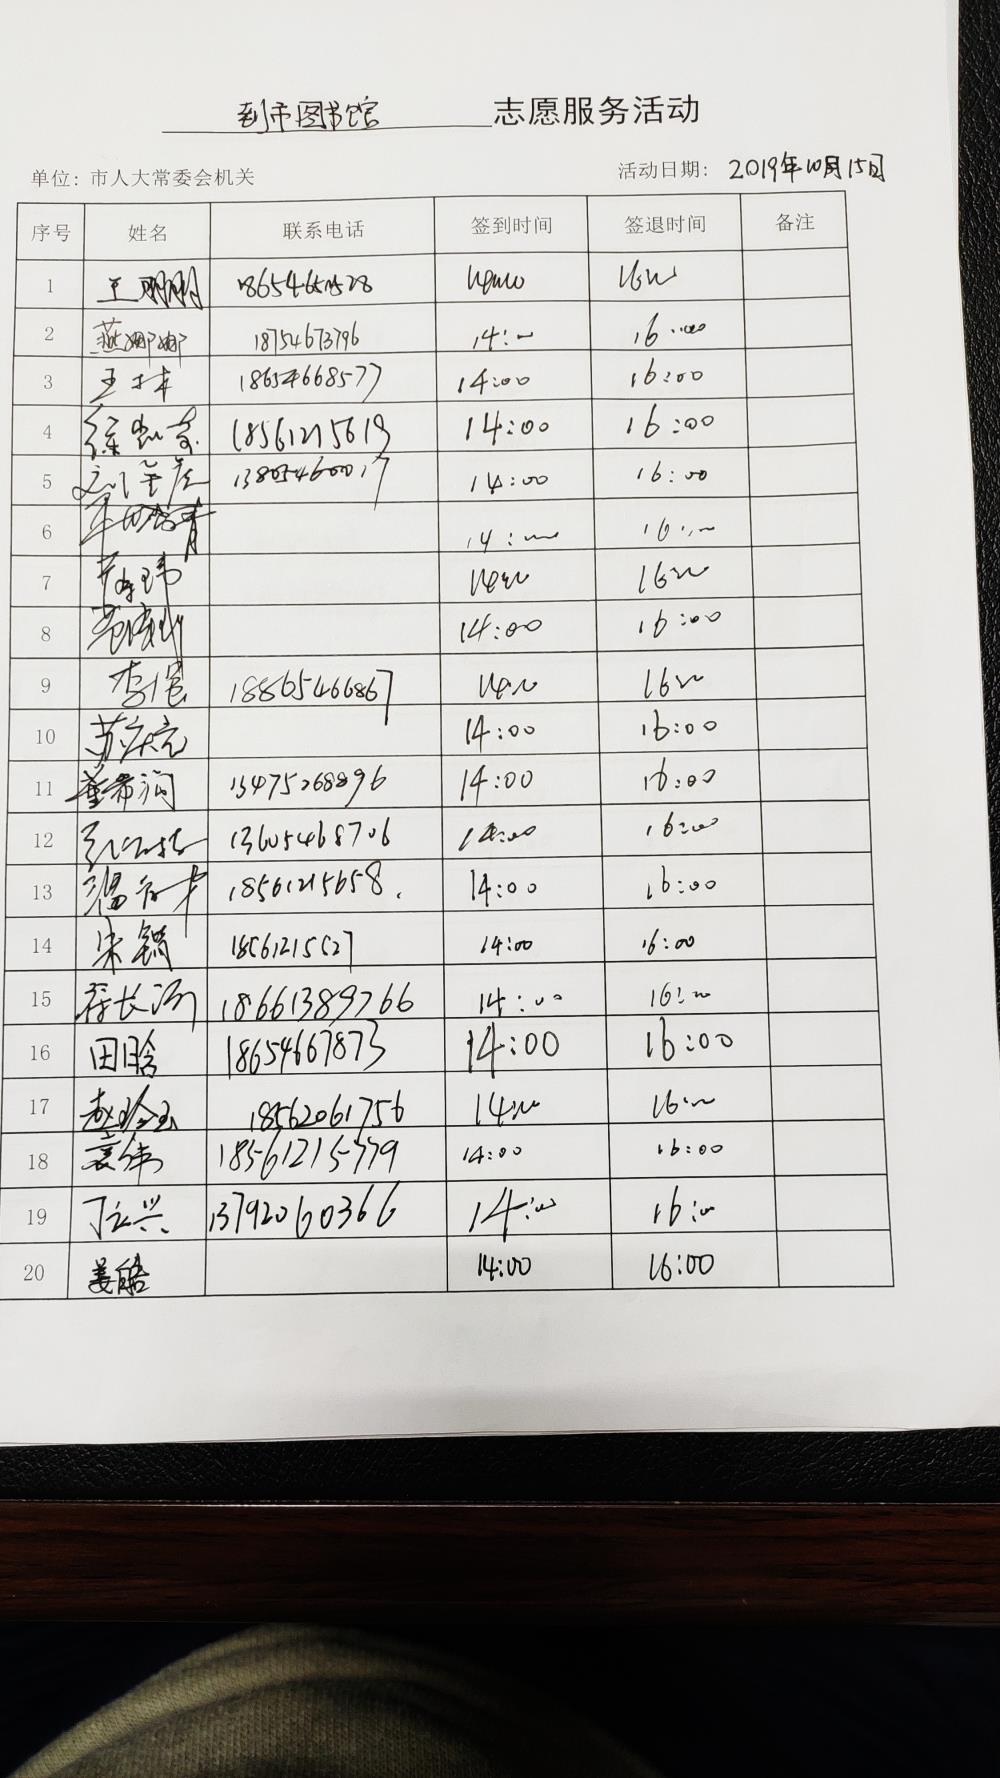 到市图书馆 志愿服务活动
单位：市人大常委会机关 活动日期： 2019年10月15日
序号 姓名 联系电话 签到时间 签退时间 备注
1 王明明 16:00
2 燕娜娜 18754673796 14:00 16:00
3 王林 18654668577 14:00 16:00
4 徐 18561215619 14:00 16:00
5 13805460017 14:00 16:00
6 14:00 16:00
7 14:00 16:00
8 14:00 16:00
9 李 18865466867 14:00 16:00
10 苏庆亮 14:00 16:00
11 董希润 13475268896 14:00 16:00
12 13605468706 14:00 16:00
13 18561215658 14:00 16:00
14 宋 18561215527 14:00 16:00
15 长 18661389766 14:00 16:00
16 田晗 18654667873 14:00 16:00
17 赵玲玉 18562061756 14:00 16:00
18 袁伟 18561215779 14:00 16:00
19 丁立兴 13792060366 14:00 16:00
20 姜皓 14:00 16:00